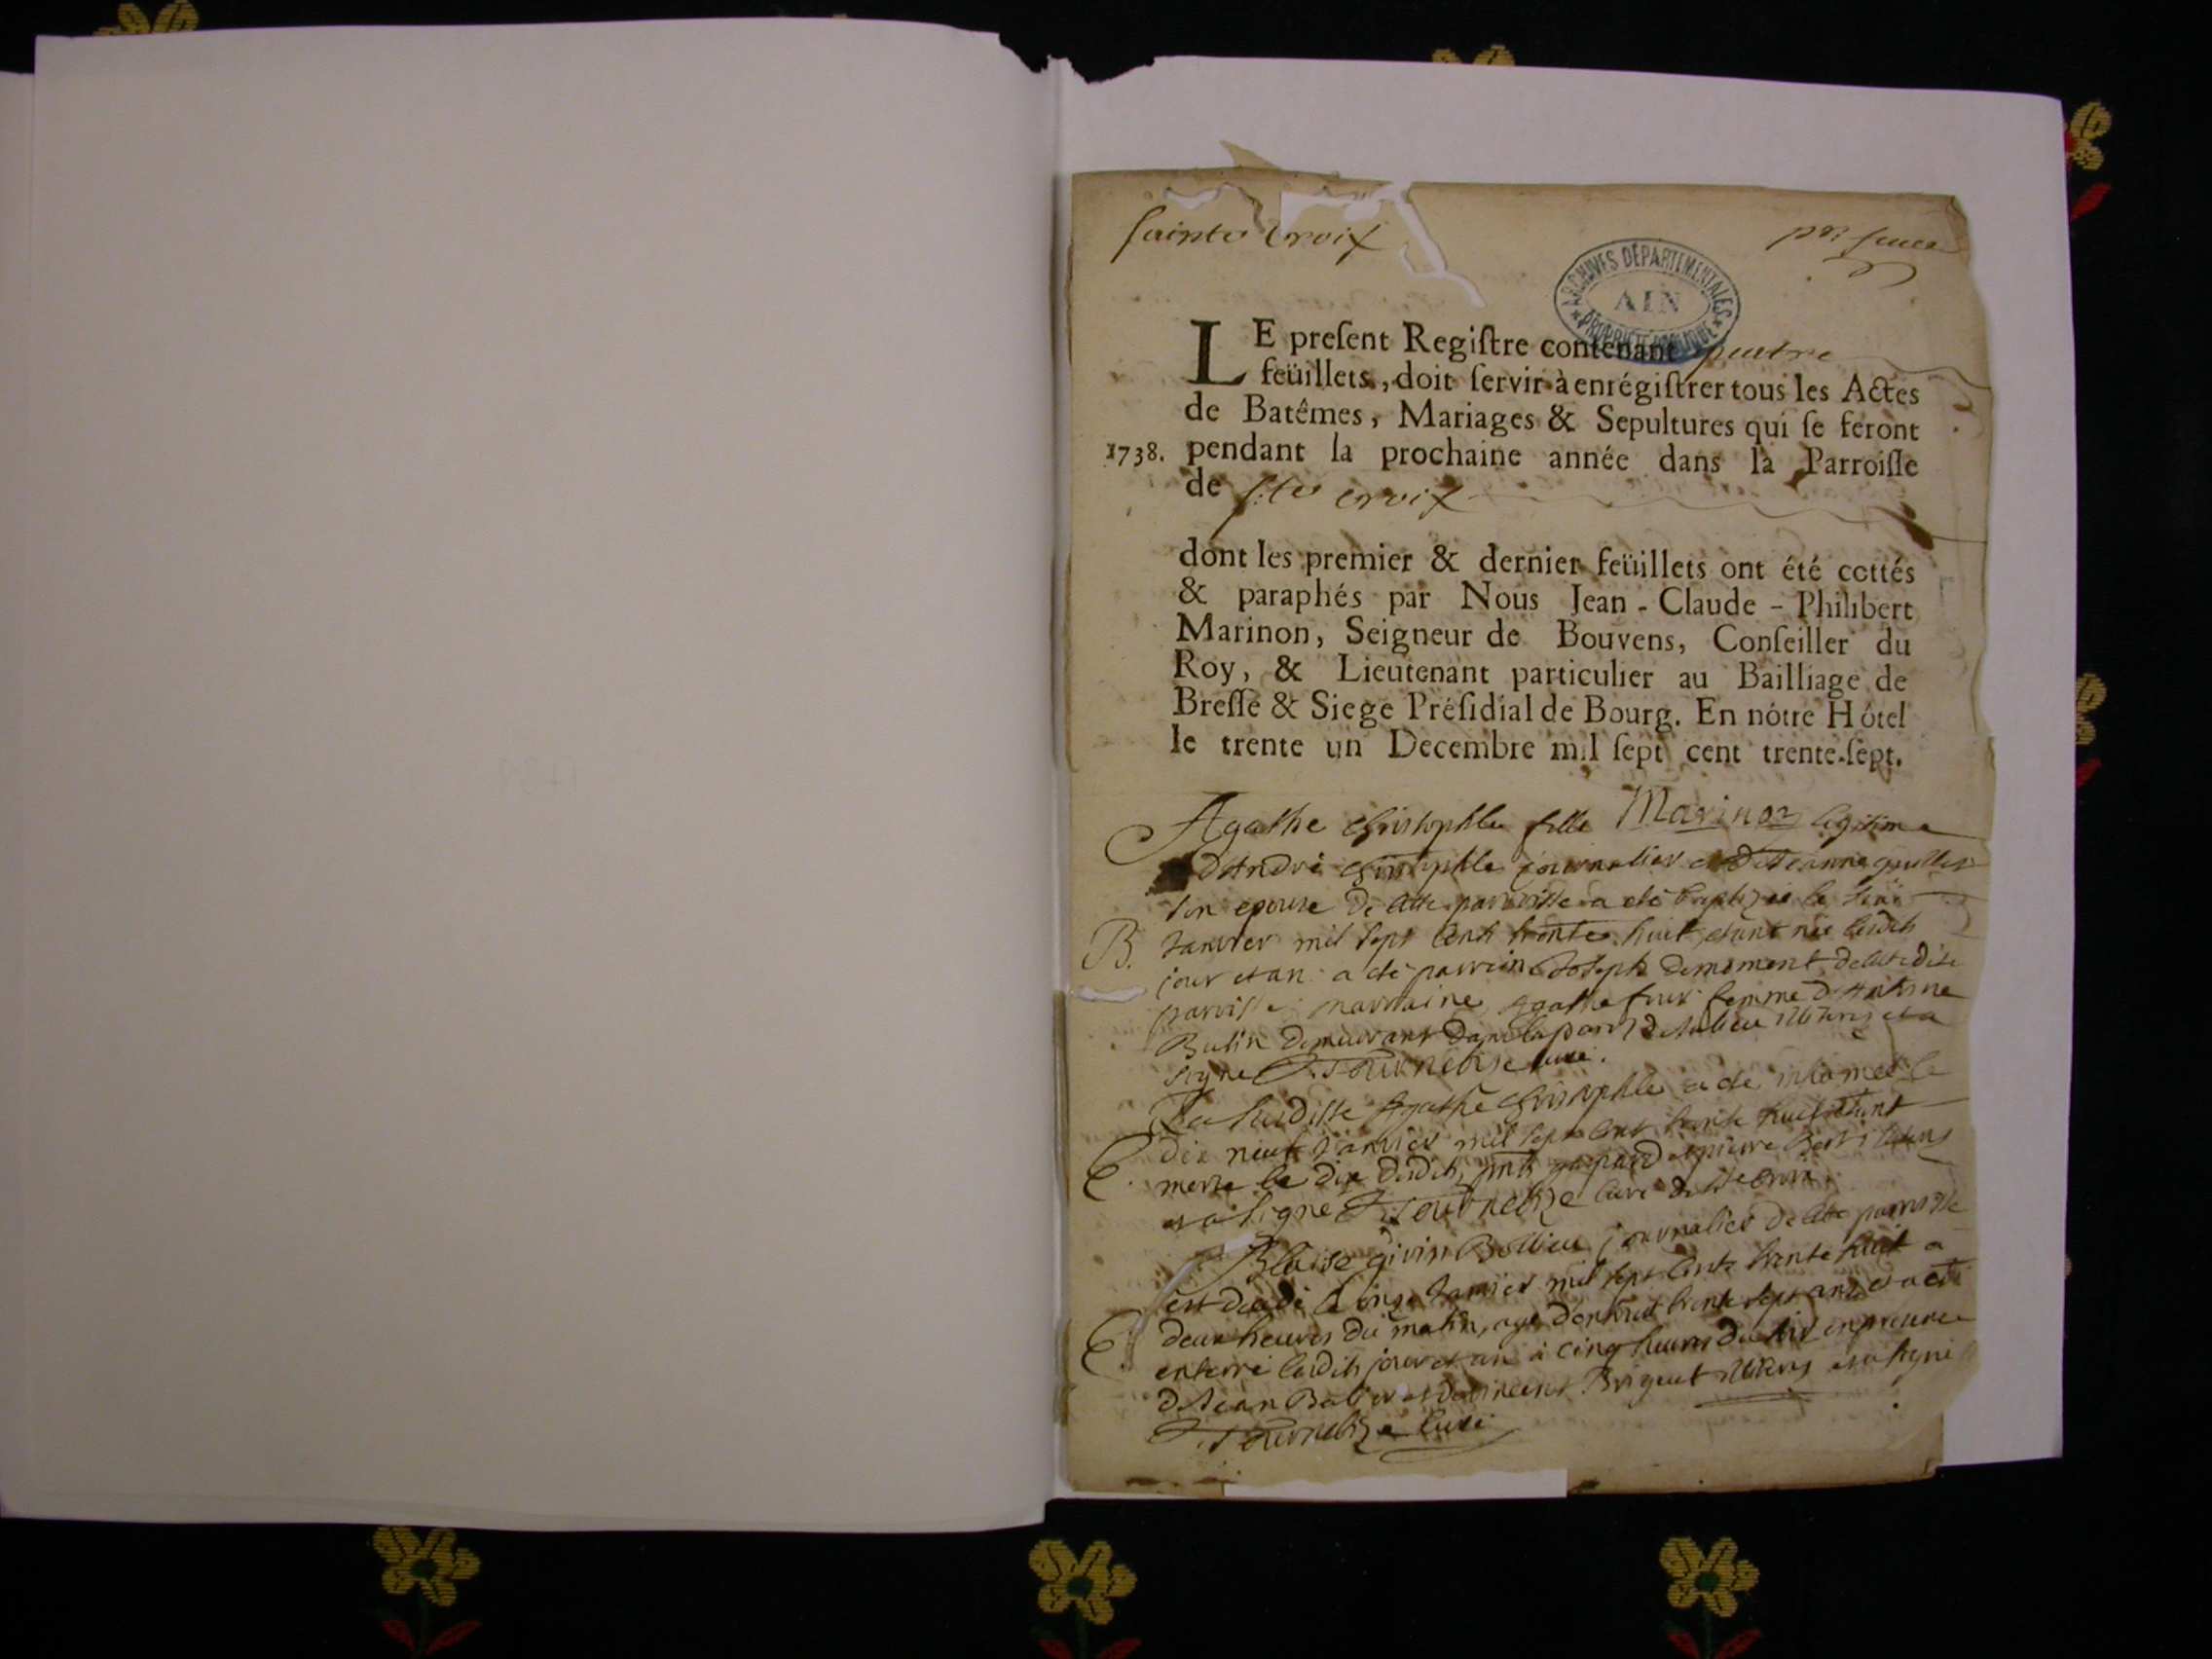 Sainte Croix
ARCHIVES DEPARTEMENTALES
AIN
PROPRIETE PUBLIQUE
LE preſent Regiſtre contenant quatre
feüillets, doit ſervir à enrégiſtrer tous les Actes
de Batêmes, Mariages & Sepultures qui ſe feront
1738. pendant la prochaine année dans la Parroiſſe
de Ste croix
dont les premier & dernier feüillets ont été cottés
& paraphés par Nous Jean-Claude-Philibert
Marinon, Seigneur de Bouvens, Conſeiller du
Roy, & Lieutenant particulier au Bailliage de
Breſſe & Siege Préſidial de Bourg. En nôtre Hôtel
le trente un Decembre mil ſept cent trente-ſept.
Marinon
Agathe Christophle fille legitime
d'André Christophle journalier et de Jeanne
son epouse de cette parroisse a eté baptizée le
B. Janvier mil sept cent trente huit etant née lesdits
jour et an a eté parrein Joseph demoment de cette dite
parroisse marraine Agathe femme d'Antoine
Bulin demeurant dans la et a
signe Tournebize curé.
La susditte Agathe Christophle a eté inhumée le
E. dix neuf Janvier mil sept cent trente huit etant
morte le dix dudit, et pierre
et a signe Tournebize curé de Ste croix.
Blaise journalier de cette parroisse
est decedé le onze Janvier mil sept cent trente huit a
E. deux heures du matin, agé d'environ trente sept ans et a eté
enterré lesdits jour et an à cinq heures du soir en presence
de Jean et de vincent et a signé
Tournebize curé